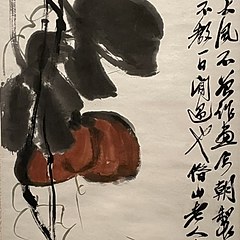 大風不曾作畫今朝製
不教一日閒過也借山老人